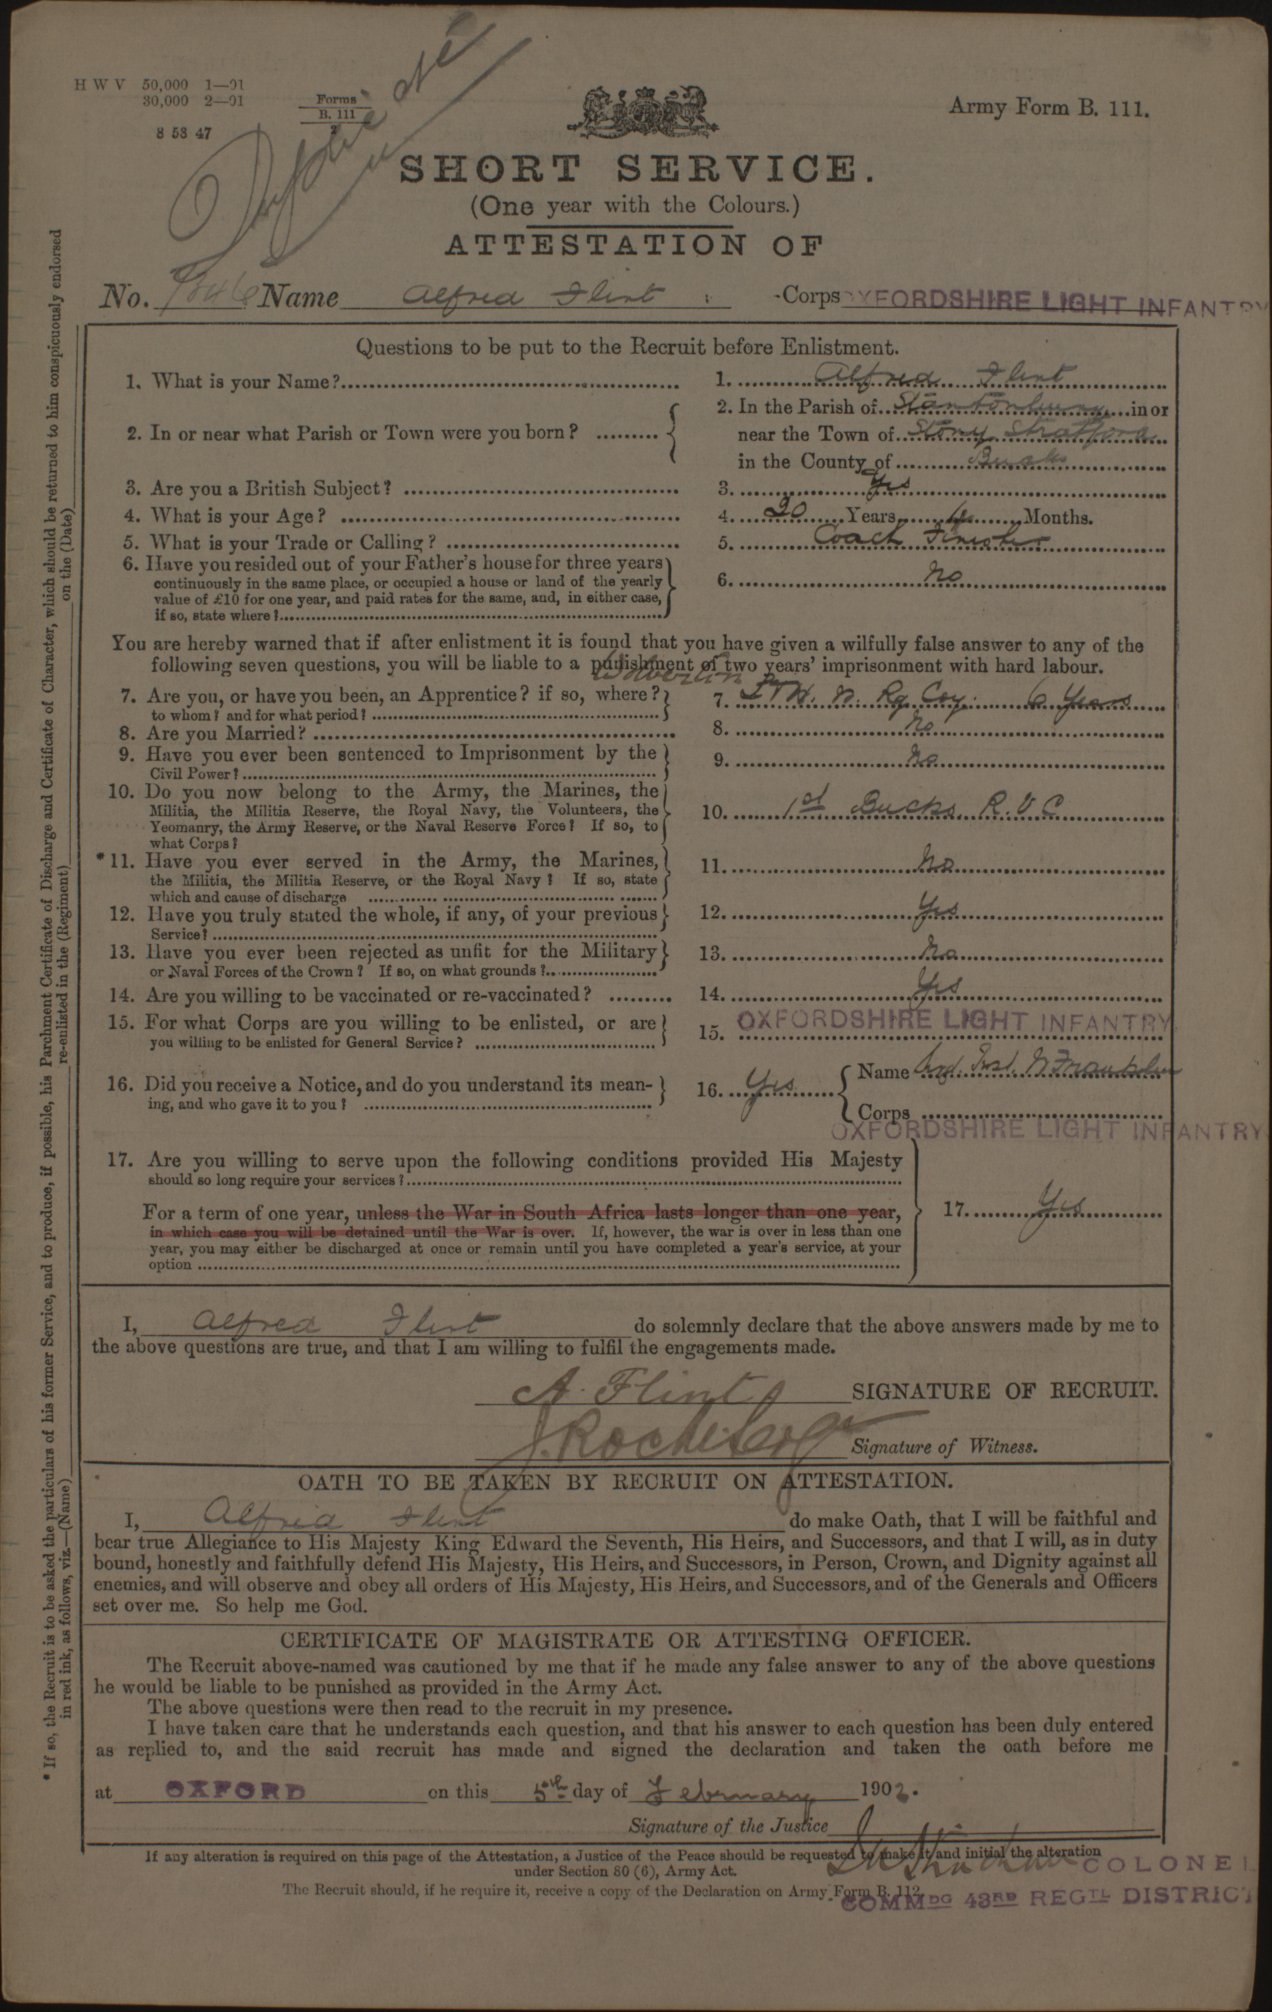 H W V 50,000 1—01
30,000 2—01
8 53 47
Forms
B. 111
2
Duplicate
Army Form B. 111.
SHORT SERVICE.
(One year with the Colours.)
ATTESTATION OF
No. 7846 Name Alfred Flint Corps OXFORDSHIRE LIGHT INFANTRY
Questions to be put to the Recruit before Enlistment.
1. What is your Name? 1. Alfred Flint
2. In or near what Parish or Town were you born? 2. In the Parish of Stantonbury in or
near the Town of Stony Stratford
in the County of Bucks
3. Are you a British Subject? 3. Yes
4. What is your Age? 4. 20 Years Months.
5. What is your Trade or Calling? 5. Coach Finisher
6. Have you resided out of your Father's house for three years
continuously in the same place, or occupied a house or land of the yearly
value of £10 for one year, and paid rates for the same, and, in either case,
if so, state where?
6. No
You are hereby warned that if after enlistment it is found that you have given a wilfully false answer to any of the
following seven questions, you will be liable to a punishment of two years' imprisonment with hard labour.
Wolverton
7. Are you, or have you been, an Apprentice? if so, where? 7. L & N. W. Ry Coy. 6 Years
to whom? and for what period?
8. Are you Married? 8. No
9. Have you ever been sentenced to Imprisonment by the
Civil Power?
9. No
10. Do you now belong to the Army, the Marines, the
Militia, the Militia Reserve, the Royal Navy, the Volunteers, the
Yeomanry, the Army Reserve, or the Naval Reserve Force? If so, to
what Corps?
10. 1st Bucks. R. V. C
*11. Have you ever served in the Army, the Marines,
the Militia, the Militia Reserve, or the Royal Navy? If so, state
which and cause of discharge
11. No
12. Have you truly stated the whole, if any, of your previous
Service?
12. Yes
13. Have you ever been rejected as unfit for the Military
or Naval Forces of the Crown? If so, on what grounds?
13. No
14. Are you willing to be vaccinated or re-vaccinated? 14. Yes
15. For what Corps are you willing to be enlisted, or are
you willing to be enlisted for General Service?
15. OXFORDSHIRE LIGHT INFANTRY
16. Did you receive a Notice, and do you understand its mean-
ing, and who gave it to you?
16. Yes
Name Franklin
Corps
OXFORDSHIRE LIGHT INFANTRY
17. Are you willing to serve upon the following conditions provided His Majesty
should so long require your services?
For a term of one year, unless the War in South Africa lasts longer than one year,
in which case you will be detained until the War is over. If, however, the war is over in less than one
year, you may either be discharged at once or remain until you have completed a year's service, at your
option
17. Yes
I, Alfred Flint do solemnly declare that the above answers made by me to
the above questions are true, and that I am willing to fulfil the engagements made.
A. Flint SIGNATURE OF RECRUIT.
J. Roche Signature of Witness.
OATH TO BE TAKEN BY RECRUIT ON ATTESTATION.
I, Alfred Flint do make Oath, that I will be faithful and
bear true Allegiance to His Majesty King Edward the Seventh, His Heirs, and Successors, and that I will, as in duty
bound, honestly and faithfully defend His Majesty, His Heirs, and Successors, in Person, Crown, and Dignity against all
enemies, and will observe and obey all orders of His Majesty, His Heirs, and Successors, and of the Generals and Officers
set over me. So help me God.
CERTIFICATE OF MAGISTRATE OR ATTESTING OFFICER.
The Recruit above-named was cautioned by me that if he made any false answer to any of the above questions
he would be liable to be punished as provided in the Army Act.
The above questions were then read to the recruit in my presence.
I have taken care that he understands each question, and that his answer to each question has been duly entered
as replied to, and the said recruit has made and signed the declaration and taken the oath before me
at OXFORD on this 5th day of February 1902.
Signature of the Justice
If any alteration is required on this page of the Attestation, a Justice of the Peace should be requested to make it and initial the alteration
under Section 80 (6), Army Act.
COLONEL
The Recruit should, if he require it, receive a copy of the Declaration on Army Form B. 112.
COMMDG 43RD REGTL DISTRICT
* If so, the Recruit is to be asked the particulars of his former Service, and to produce, if possible, his Parchment Certificate of Discharge and Certificate of Character, which should be returned to him conspicuously endorsed
in red ink, as follows, viz.—(Name) re-enlisted in the (Regiment) on the (Date)